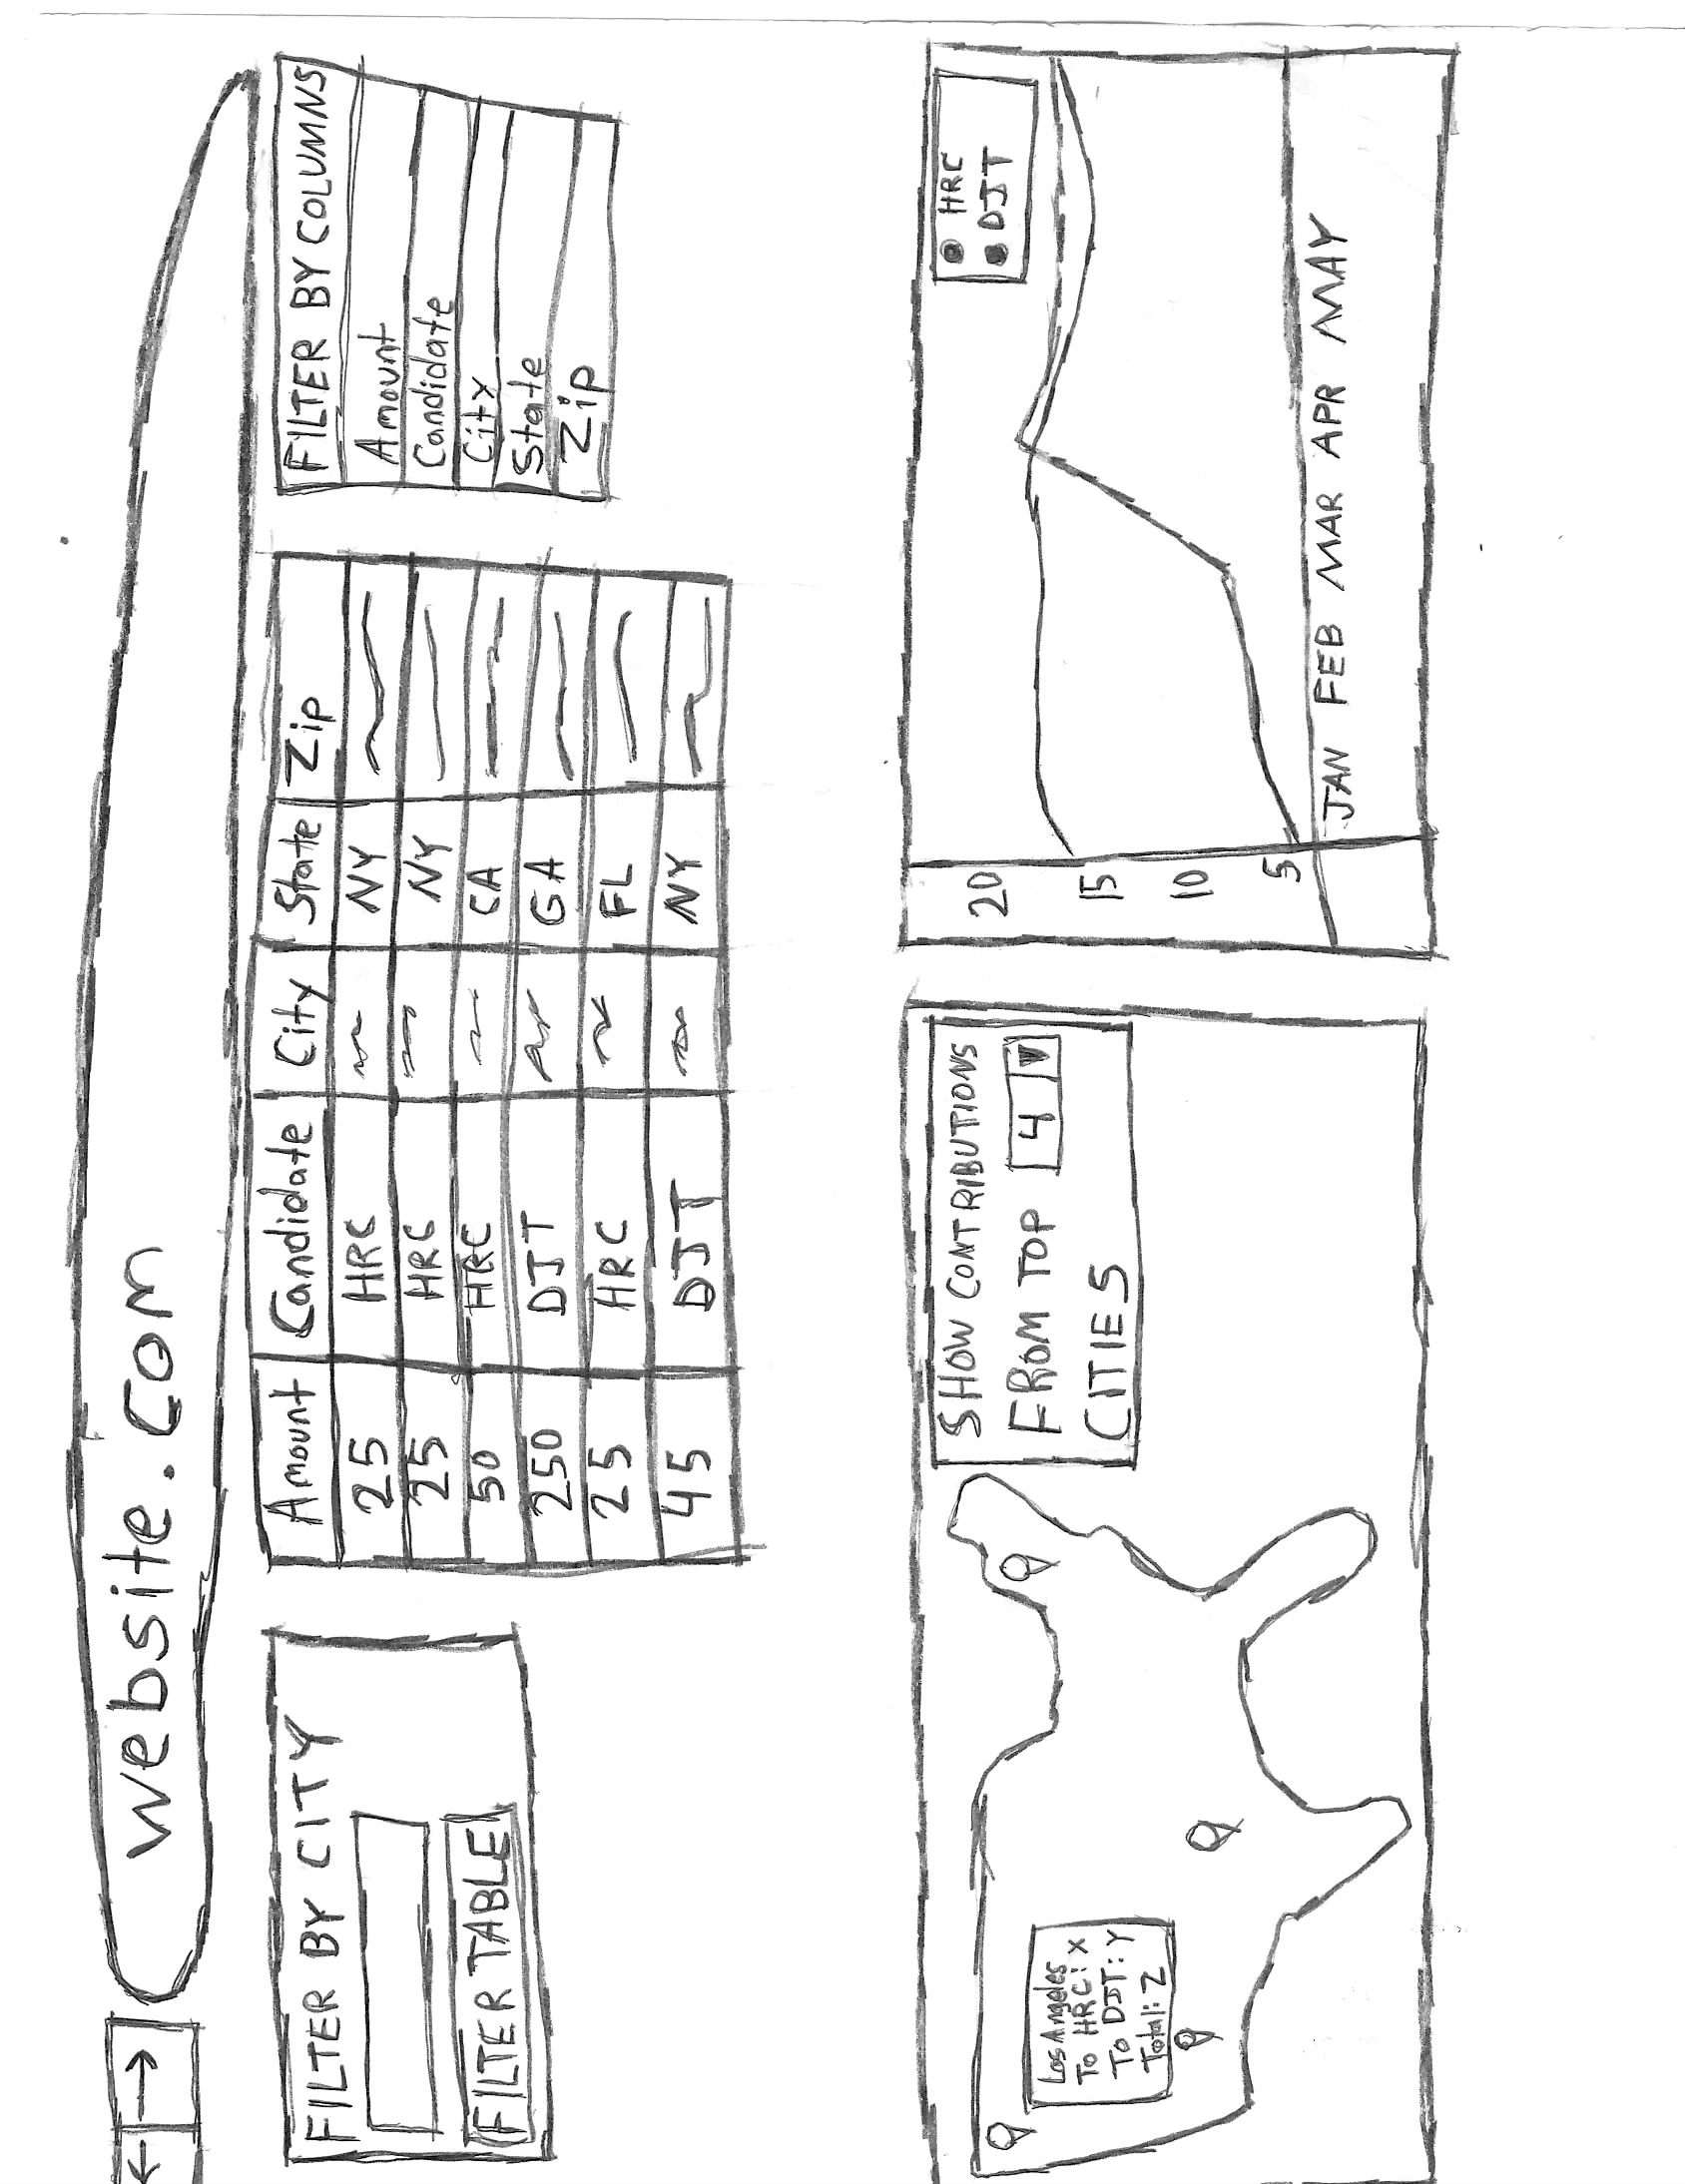 website.com
FILTER BY CITY
FILTER TABLE
Amount Candidate City State Zip
25 HRC NY
25 HRC NY
50 HRC CA
250 DJT GA
25 HRC FL
45 DJT NY
FILTER BY COLUMNS
Amount
Candidate
City
State
Zip
Los Angeles
To HRC: X
To DJT: Y
Total: Z
SHOW CONTRIBUTIONS
FROM TOP 4
CITIES
HRC
DJT
20
15
10
5
JAN FEB MAR APR MAY